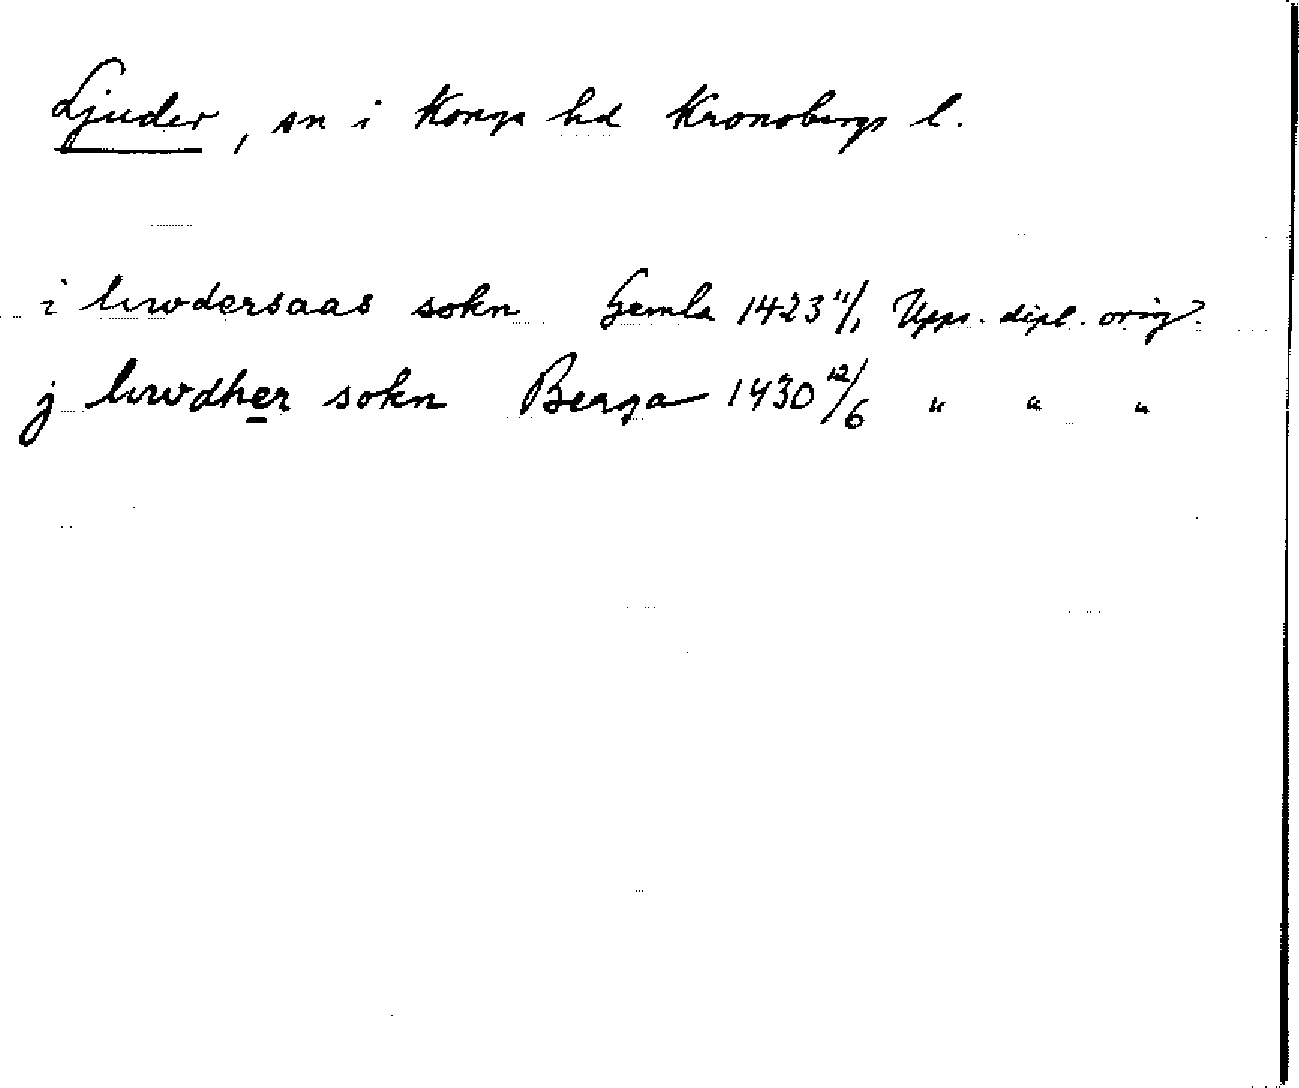 Ljuder, sn i Konga hd Kronobergs l.
i liwdersaas sokn Gemla 1423 11/1 Upps. dipl. orig.
j liwdher sokn Berga 1430 12/6 " " "